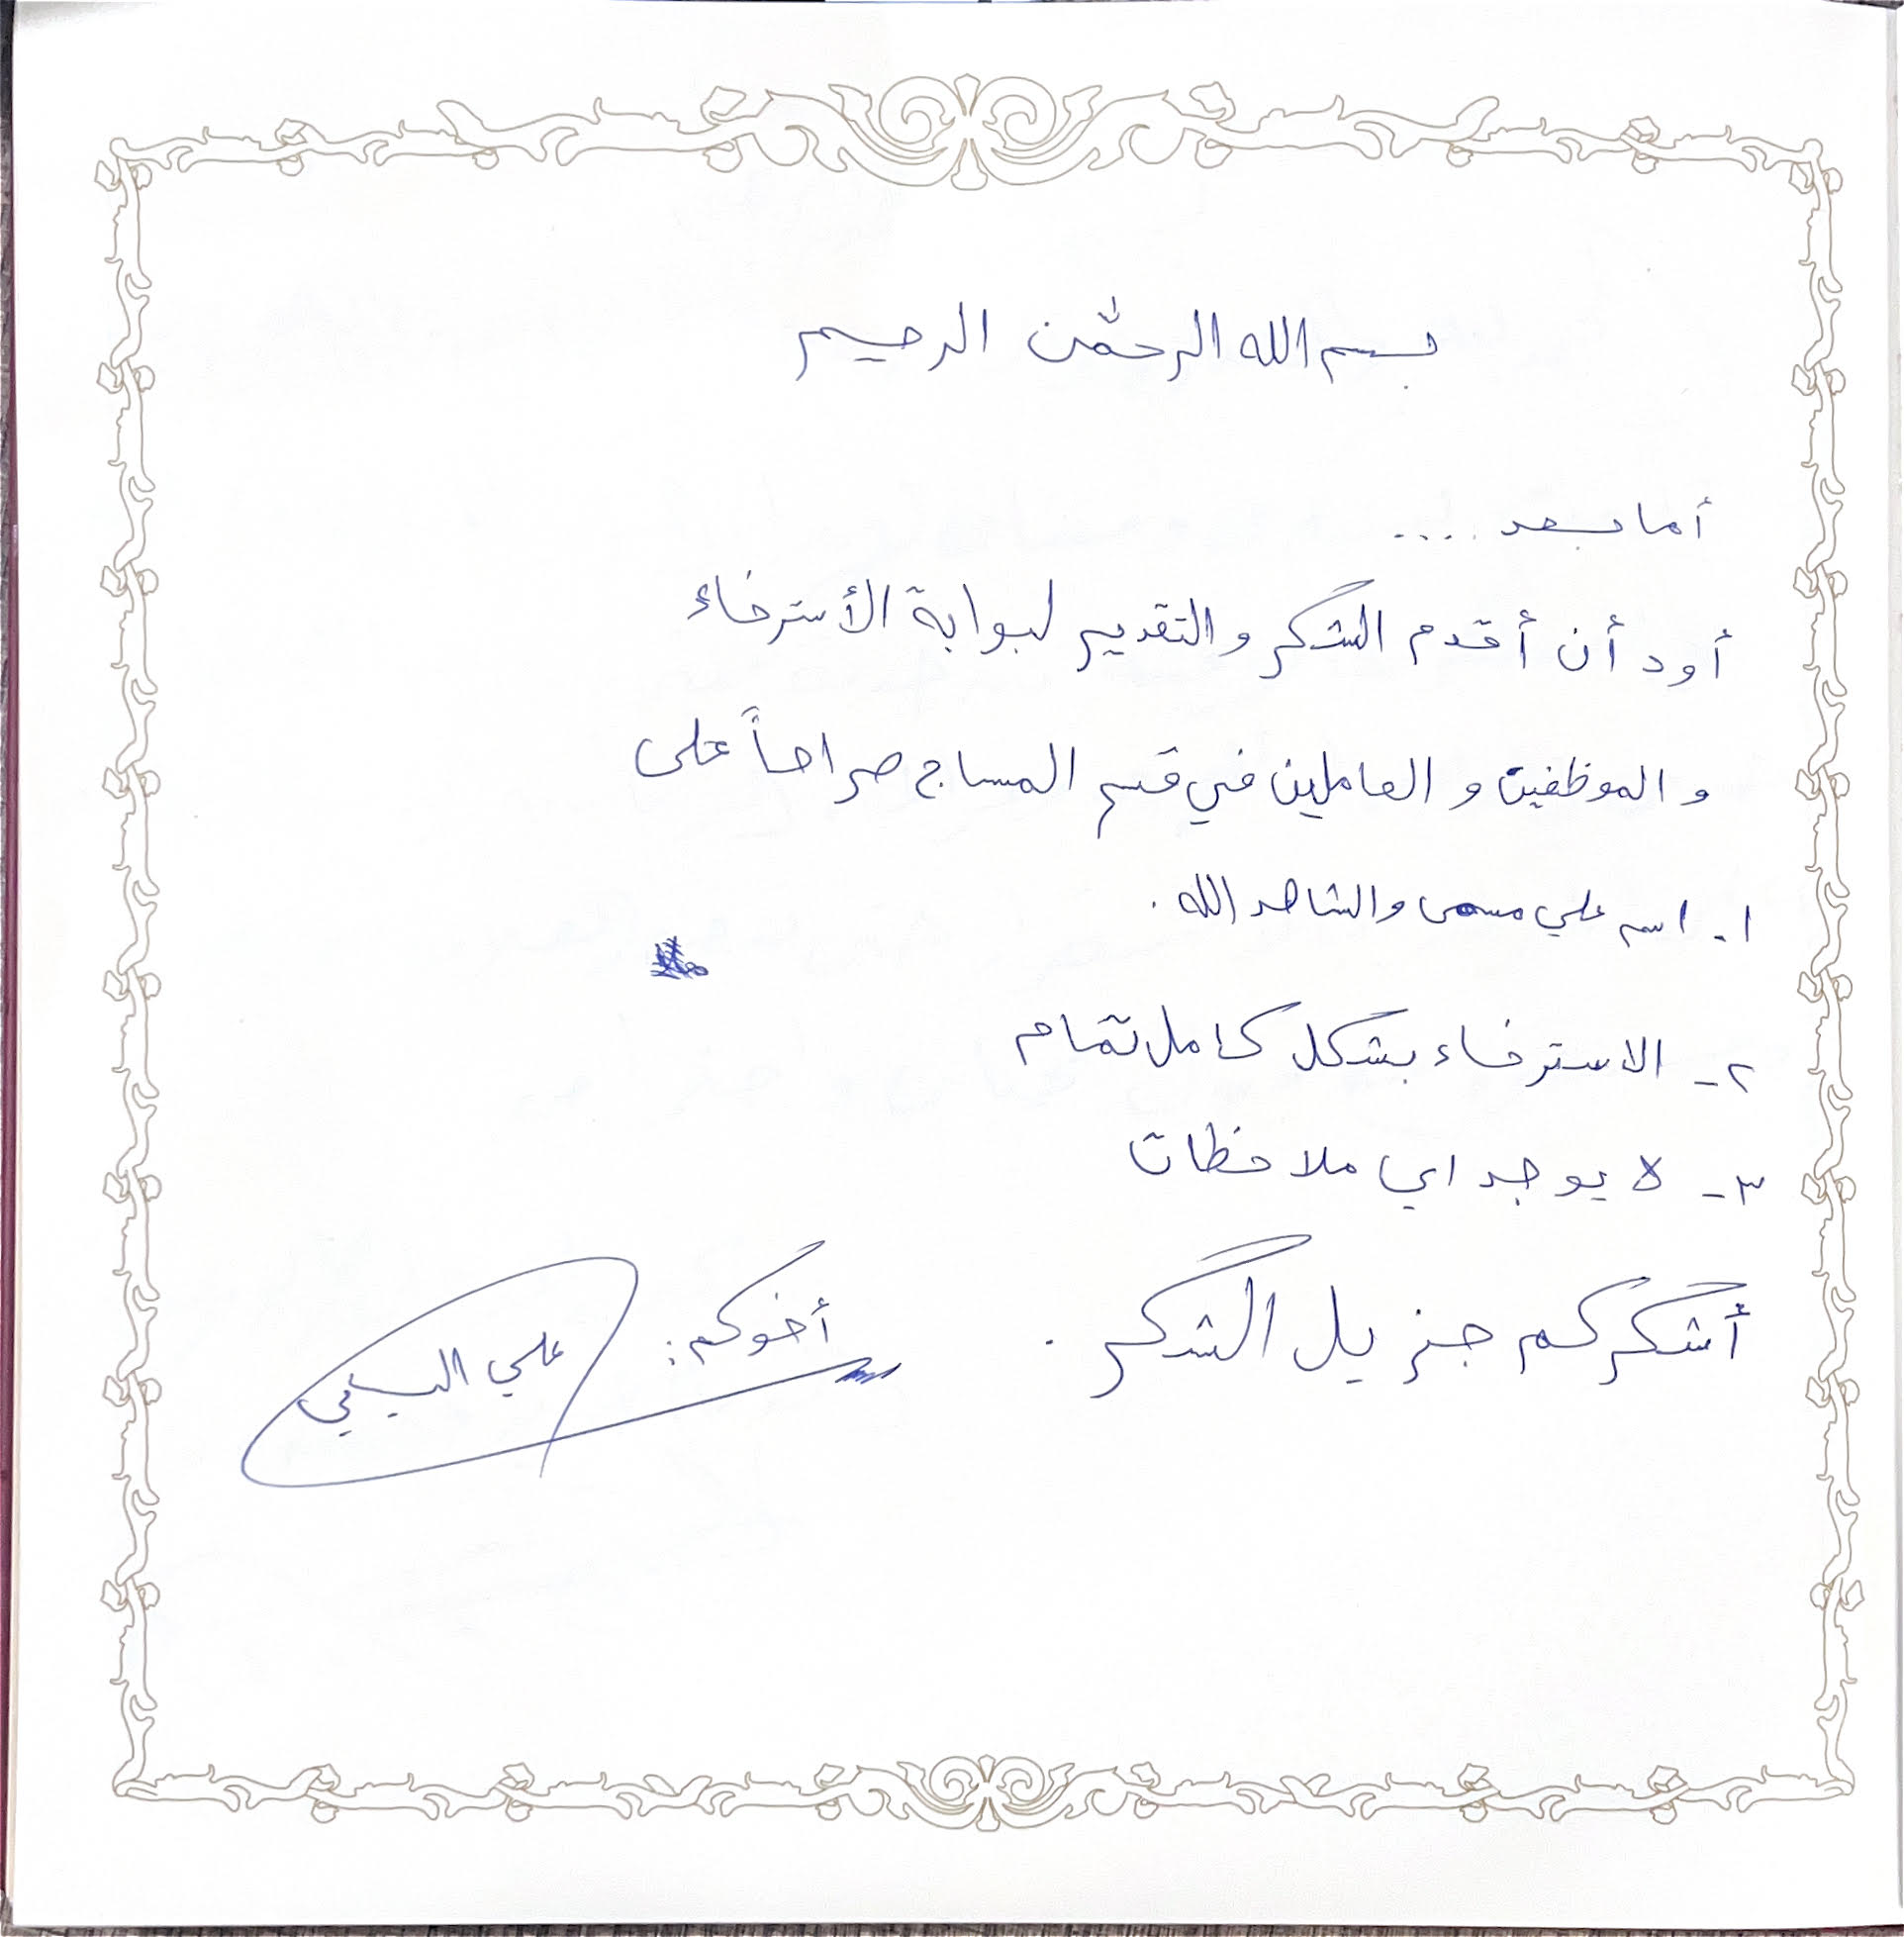 بسم الله الرحمٰن الرحيم
أما بعد ....
أود أن أقدم الشكر والتقدير لبوابة الأسترخاء
و الموظفين و العاملين في قسم المساج صراحاً على
١- اسم علي مسمى والشاهد الله .
٢- الاسترخاء بشكل كامل تمام
٣- لا يوجد اي ملاحظات
أشكركم جزيل الشكر .
أخوكم: علي